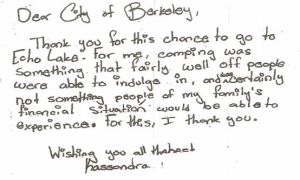 Dear City of Berkeley,
Thank you for this chance to go to
Echo Lake. For me, camping was
something that fairly well off people
were able to indulge in, and was certainly
not something people of my family's
financial situation would be able to
experience. For this, I thank you.
Wishing you all the best
Kassandra!